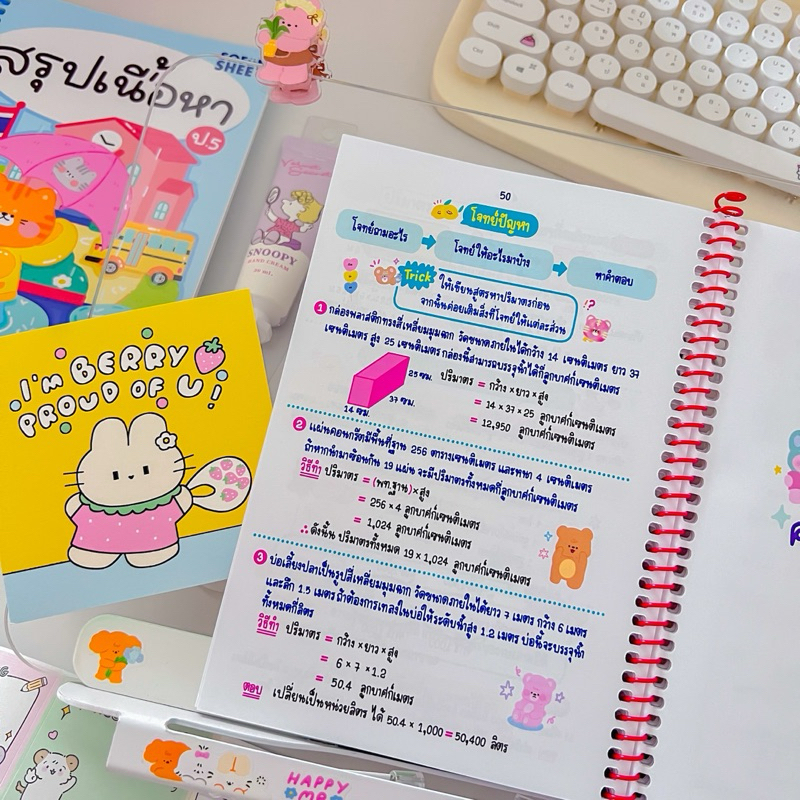 สรุปเนื้อหา
ป.5
SHEE
SNOOPY
HAND CREAM
I'm BERRY
PROUD OF U!
Shift
Ctrl
50
โจทย์ปัญหา
โจทย์ถามอะไร
โจทย์ให้อะไรมาบ้าง
หาคำตอบ
Trick
ให้เขียนสูตรหาปริมาตรก่อน
จากนั้นค่อยเติมสิ่งที่โจทย์ให้แต่ละส่วน
1 กล่องพลาสติกทรงสี่เหลี่ยมมุมฉาก วัดขนาดภายในได้กว้าง 14 เซนติเมตร ยาว 37
เซนติเมตร สูง 25 เซนติเมตร กล่องนี้สามารถบรรจุน้ำได้กี่ลูกบาศก์เซนติเมตร
25 ซม.
37 ซม.
14 ซม.
ปริมาตร = กว้าง × ยาว × สูง
= 14 × 37 × 25 ลูกบาศก์เซนติเมตร
= 12,950 ลูกบาศก์เซนติเมตร
2 แผ่นคอนกรีตมีพื้นที่ฐาน 256 ตารางเซนติเมตร และหนา 4 เซนติเมตร
ถ้าหากนำมาซ้อนกัน 19 แผ่น จะมีปริมาตรทั้งหมดกี่ลูกบาศก์เซนติเมตร
วิธีทำ ปริมาตร = (พท.ฐาน) × สูง
= 256 × 4 ลูกบาศก์เซนติเมตร
= 1,024 ลูกบาศก์เซนติเมตร
∴ ดังนั้น ปริมาตรทั้งหมด 19 × 1,024 ลูกบาศก์เซนติเมตร
3 บ่อเลี้ยงปลาเป็นรูปสี่เหลี่ยมมุมฉาก วัดขนาดภายในได้ยาว 7 เมตร กว้าง 6 เมตร
และลึก 1.5 เมตร ถ้าต้องการเทลงในบ่อให้ระดับน้ำสูง 1.2 เมตร บ่อนี้จะบรรจุน้ำ
ทั้งหมดกี่ลิตร
วิธีทำ ปริมาตร = กว้าง × ยาว × สูง
= 6 × 7 × 1.2
= 50.4 ลูกบาศก์เมตร
ตอบ เปลี่ยนเป็นหน่วยลิตร ได้ 50.4 × 1,000 = 50,400 ลิตร
HAPPY